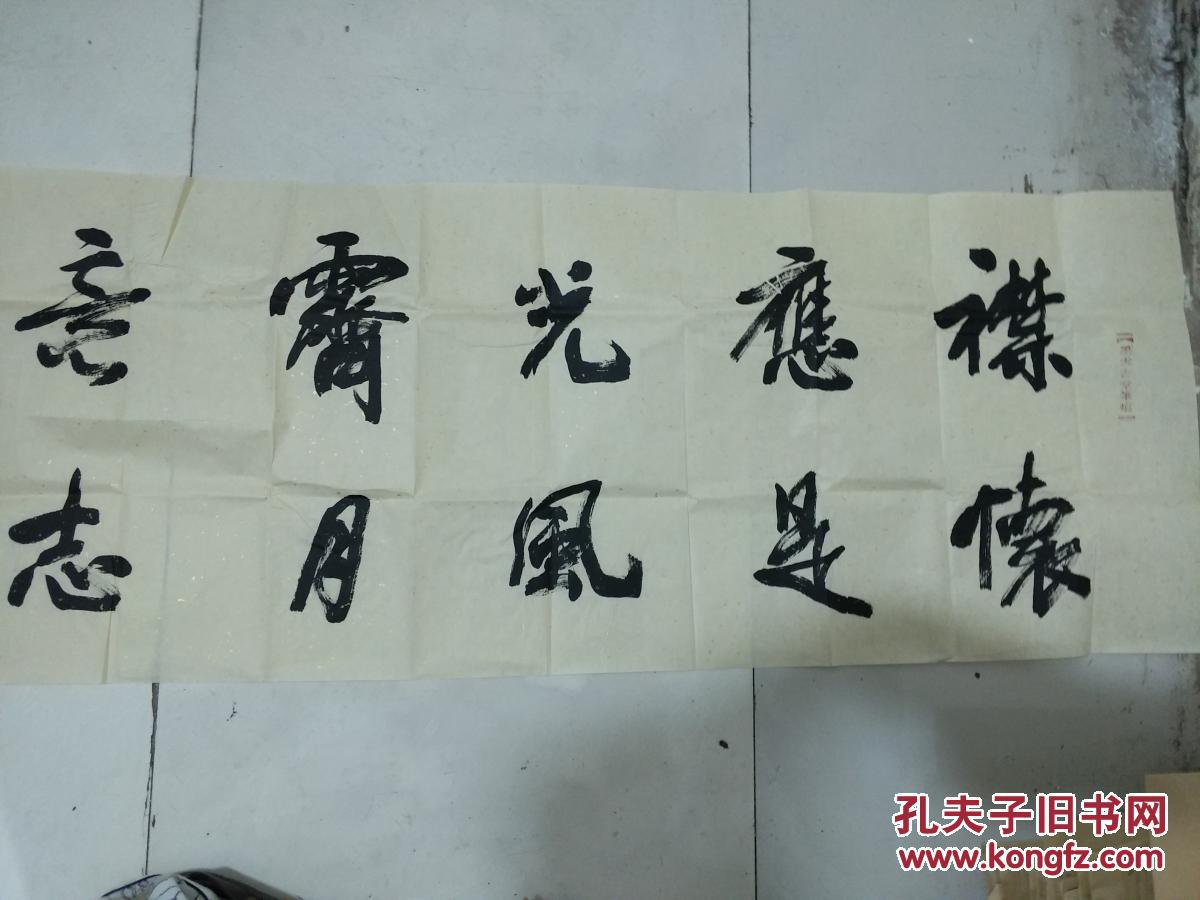 襟懷
應是
光風
霽月
意志
孔夫子旧书网
www.kongfz.com